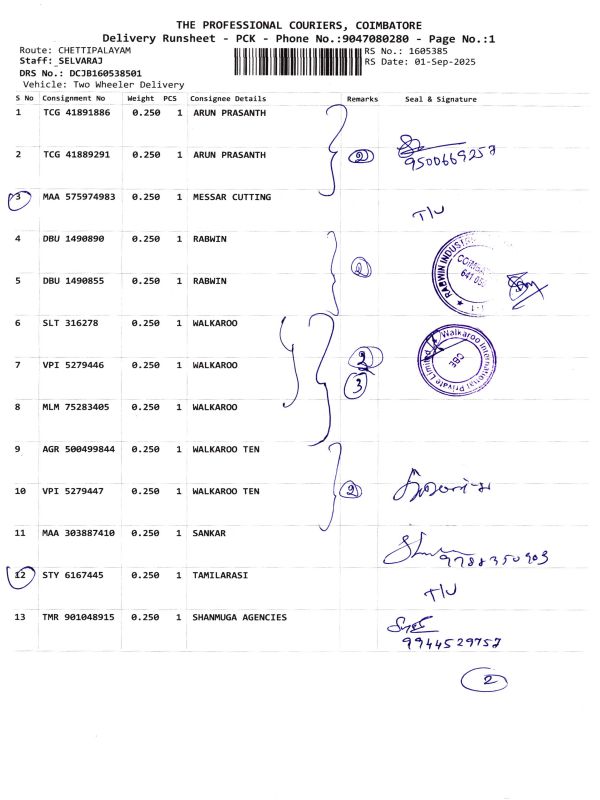 THE PROFESSIONAL COURIERS, COIMBATORE
Delivery Runsheet - PCK - Phone No.:9047080280 - Page No.:1
Route: CHETTIPALAYAM RS No.: 1605385
Staff: SELVARAJ RS Date: 01-Sep-2025
DRS No.: DCJB160538501
Vehicle: Two Wheeler Delivery
S No Consignment No Weight PCS Consignee Details Remarks Seal & Signature
1 TCG 41891886 0.250 1 ARUN PRASANTH
2 TCG 41889291 0.250 1 ARUN PRASANTH 2
9500669257
3 MAA 575974983 0.250 1 MESSAR CUTTING
T/U
4 DBU 1490890 0.250 1 RABWIN
2 RABWIN INDUST
641 05
5 DBU 1490855 0.250 1 RABWIN
6 SLT 316278 0.250 1 WALKAROO
Walkaroo International Private Limited
CBE
7 VPI 5279446 0.250 1 WALKAROO
3
8 MLM 75283405 0.250 1 WALKAROO
9 AGR 500499844 0.250 1 WALKAROO TEN
10 VPI 5279447 0.250 1 WALKAROO TEN 2
11 MAA 303887410 0.250 1 SANKAR
9788350903
12 STY 6167445 0.250 1 TAMILARASI
T/U
13 TMR 901048915 0.250 1 SHANMUGA AGENCIES
9944529757
2